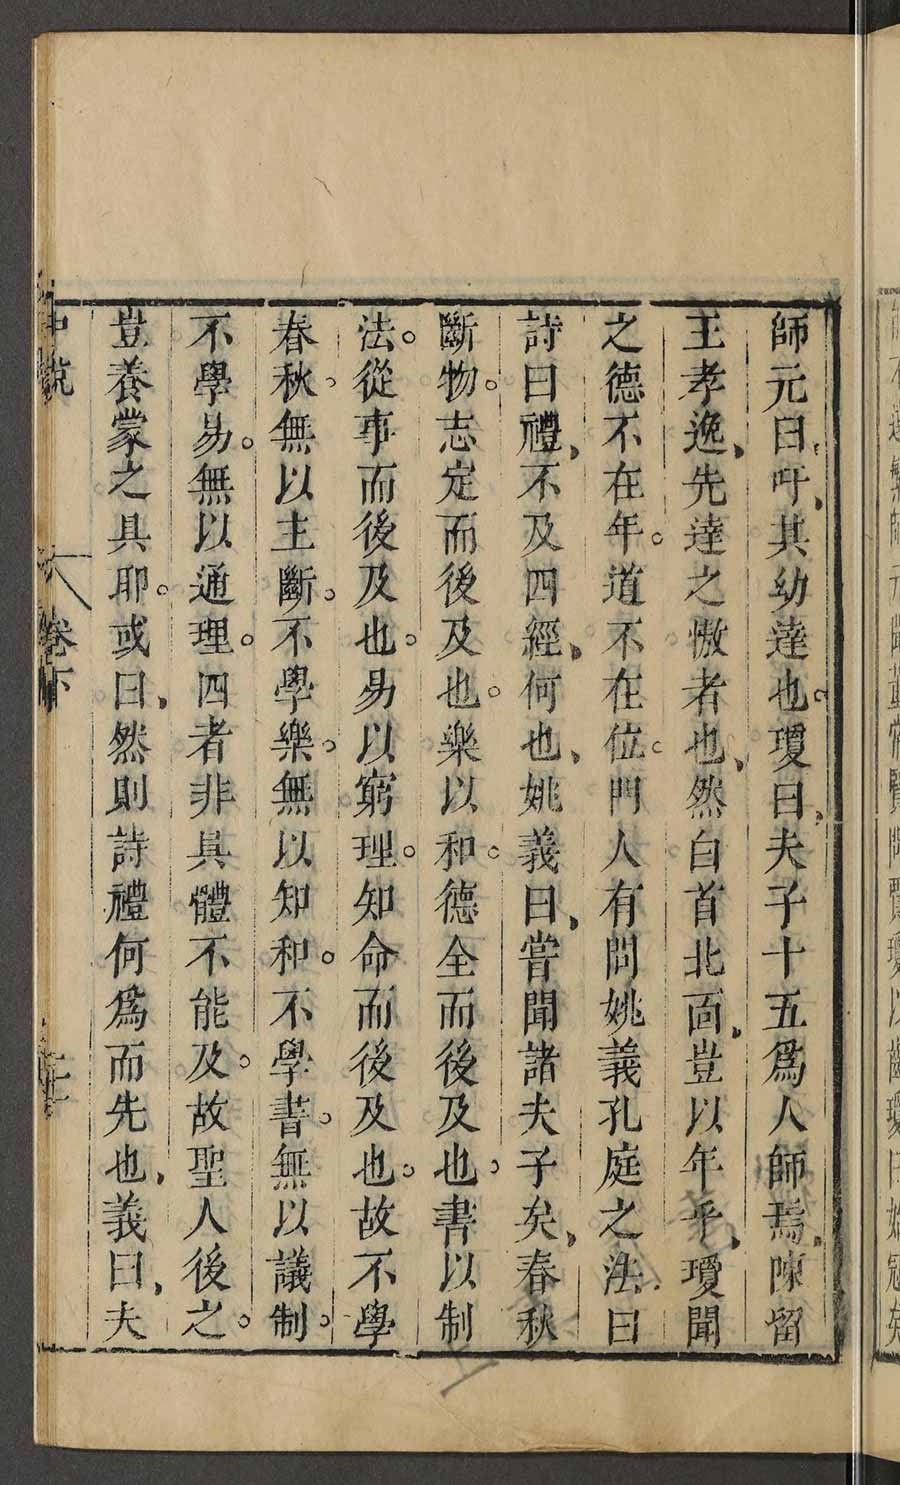 師元曰吁、其幼達也。瓊曰、夫子十五爲人師焉、陳留
王孝逸、先達之慠者也、然白首北面、豈以年乎、瓊聞
之德不在年。道不在位。門人有問姚義孔庭之法曰
詩曰禮、不及四經、何也、姚義曰、嘗聞諸夫子矣、春秋
斷物。志定而後及也。樂以和。德全而後及也。書以制
法。從事而後及也。易以窮理。知命而後及也。故不學
春秋。無以主斷。不學樂。無以知和。不學書。無以議制。
不學易。無以通理。四者非具體不能及。故聖人後之。
豈養蒙之具耶。或曰、然則詩禮何爲而先也、義曰、夫
中說
卷下